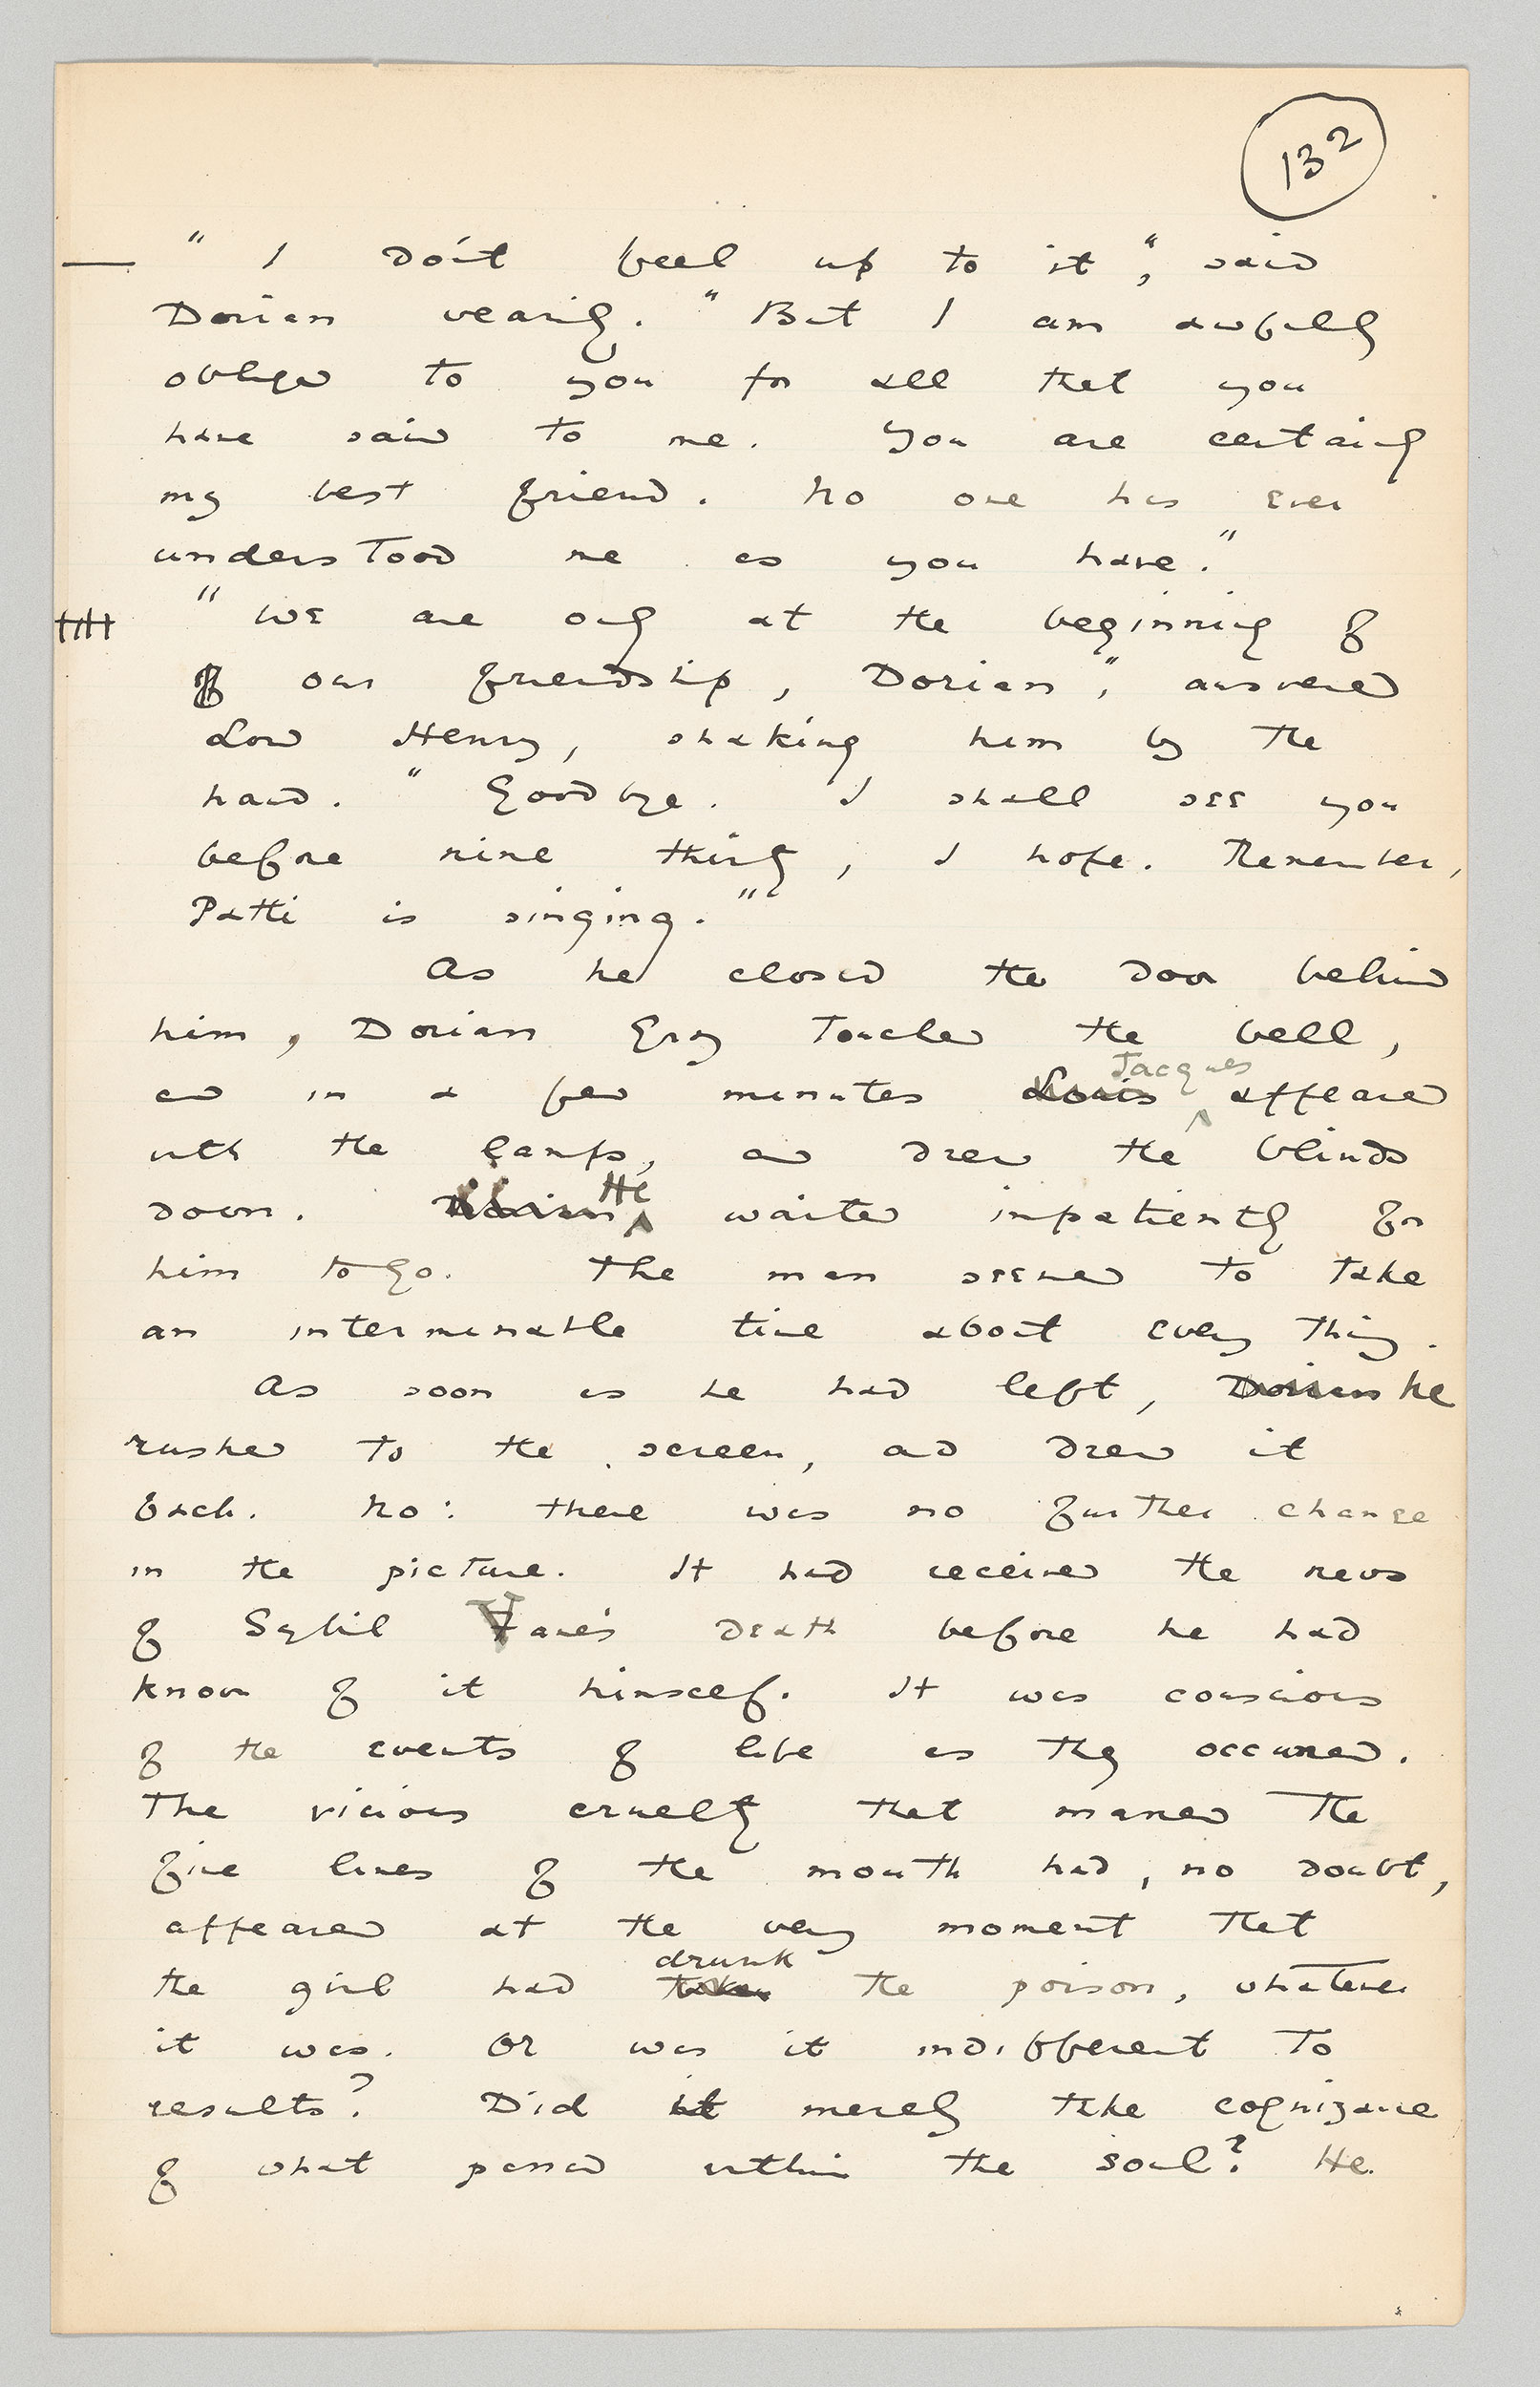 132
" I don't feel up to it", said
Dorian wearily. "But I am awfully
obliged to you for all that you
have said to me. You are certainly
my best friend. No one has ever
understood me as you have."
" We are only at the beginning of
of our friendship, Dorian", answered
Lord Henry, shaking him by the
hand. " Good bye. I shall see you
before nine thirty, I hope. Remember,
Patti is singing."
As he closed the door behind
him, Dorian Gray touched the bell,
Jacques
and in a few minutes Louis appeared
with the lamps, and drew the blinds
He
down. Dorian waited impatiently for
him to go. The man seemed to take
an interminable time about every thing.
As soon as he had left, Dorian he
rushed to the screen, and drew it
back. No: there was no further change
in the picture. It had received the news
of Sybil Vane's death before he had
known of it himself. It was conscious
of the events of life as they occurred.
The vicious cruelty that marred the
fine lines of the mouth had, no doubt,
appeared at the very moment that
drunk
the girl had taken the poison, whatever
it was. Or was it indifferent to
results? Did it merely take cognizance
of what passed within the soul? He